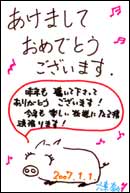 あけまして
おめでとう
ございます.
昨年も通って下さって
ありがとうございます!
今年も楽しい教室になる様
頑張ります!
2007.1.1.